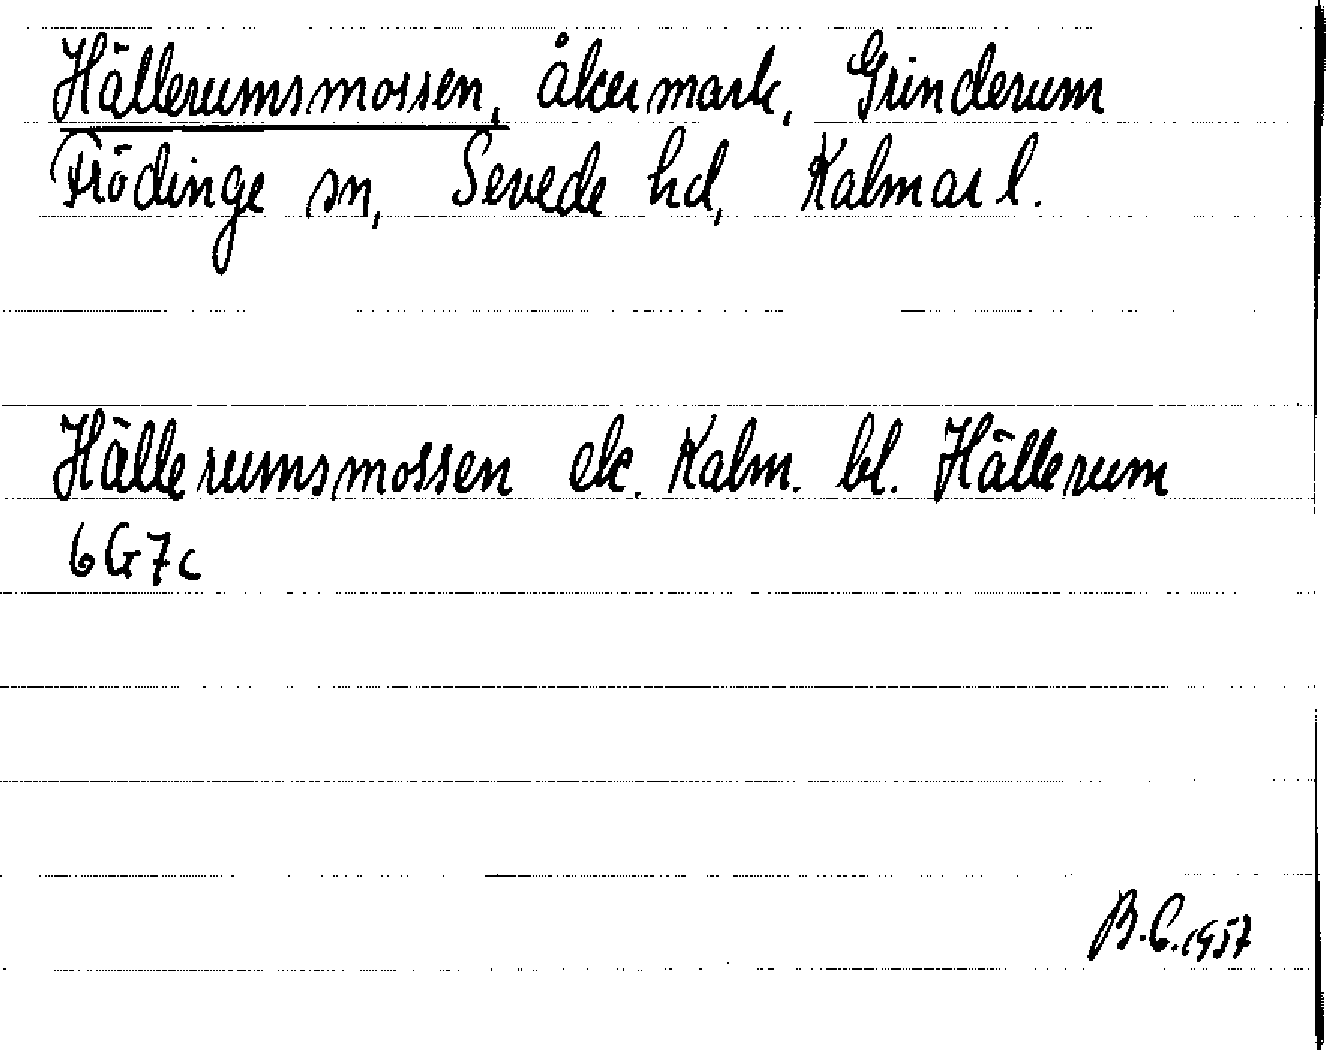 Hällerumsmossen, åkermark, Grinderum
Frödinge sn, Sevede hd, Kalmar l.
Hällerumsmossen ek. Kalm. bl. Hällerum
6G7c
B.C. 1957